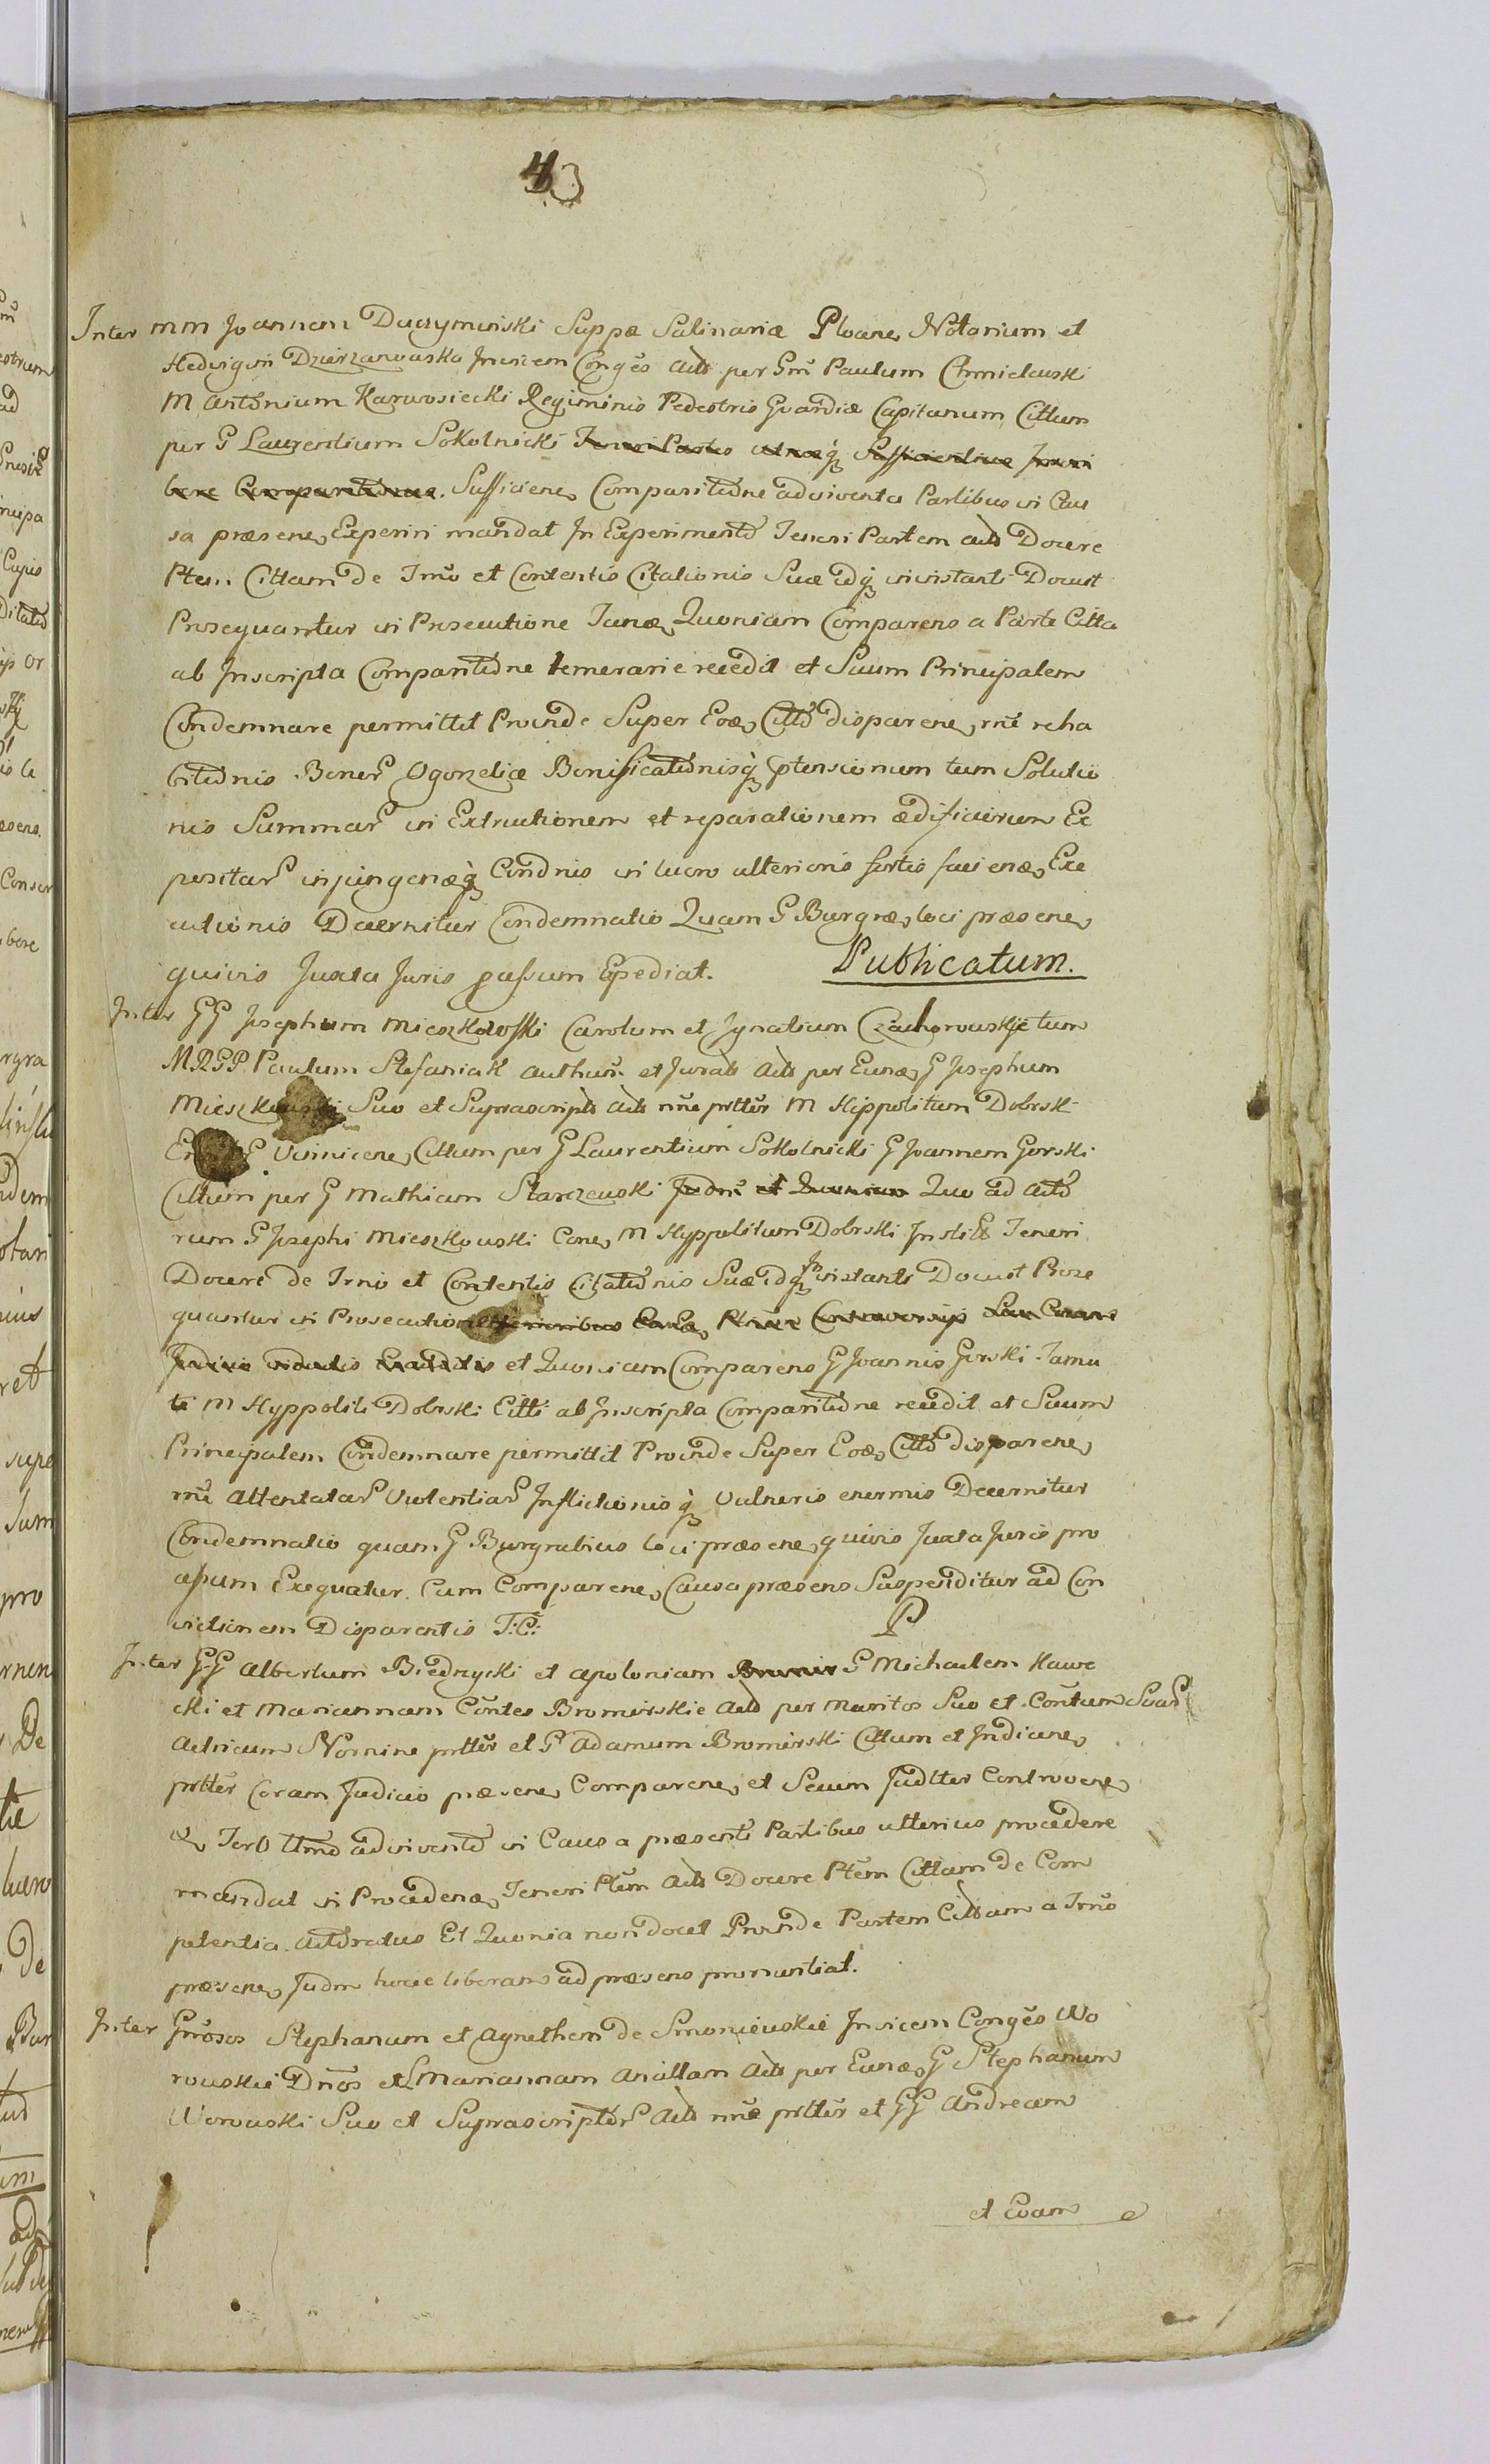 43
Inter MM Joannem Duczyminski Suppæ Salinariæ Plocen Notarium et
Hedvigim Dzierzanowska Invicem Conges Acto per Gm Paulum Chmielewski
M Antonium Karwosiecki Regiminis Pedestris Gvardiæ Capitanum Cittum
per G Laurentium Sokolnicki Teneri Partes utrasq Sufficientius Inscri
bere Comparitiones. Sufficien Comparitione adinventa Partibus in Cau
sa præsen Experiri mandat In Experimento Teneri Partem Acto Docere
Ptem Cittam de Trno et Contentis Citationis Suæ idq in instanti Docuit
Prosequantur in Prosecutione Tunæ Quoniam Comparens a Parte Citta
ab Inscripta Comparitione temerarie recedit et Suum Principalem
Condemnare permittit Proinde Super Eoæ Citto disparen rne reha
bitionis Bonor Ogorzeliæ Bonificationisq ptensionum tum Solutio
nis Summar in Extructionem et reparationem ædificiorum Ex
positar injungenæq Condnis in lucro ulterioris fortis faci enæ Exe
cutionis Decernitur Condemnatio Quam G Burgræ loci præsen
quivis Juxta Juris passum Expediat. Publicatum.
Inter GG Josephum Mieszkowski Carolum et Ignatium Czachorowskje tum
MRGP Paulum Stefaniak Authur et Jurato Acto per Eunæ G Josephum
Mieszkowski Suo et Suprascripto Acto nne prttur M Hippolitum Dobrski
G Vinnicen Cittum per G Laurentium Sokolnicki G Joannem Gorski
Cittum per G Mathiam Starczewski Judm et Quoniam Quo ad Acto
rum G Josephi Mieszkowski Con M Hyppolitum Dobrski Instit Teneri
Docere de Trno et Contentis Citationis Suæ idq In instanti Docuit Prose
quantur in Prosecutione Controversiis
Judicio Exauditis et Quoniam Comparens G Joannis Gorski Famu
li M Hyppoliti Dobrski Citti ab Inscripta Comparitione recedit et Suum
Principalem Condemnare permittit Proinde Super Eoæ Citto disparen
rne Attentatar Violentiar Inflictionisq Vulneris enormis Decernitur
Condemnatio quam G Burgrabius loci præsen quivis Juxta Juris pro
cessum Exequatur. Cum Comparen Causa præsens Suspenditur ad Con
victionem Disparentis T:C: P
Inter GG Albertum Biedrzycki et Apoloniam Bromir G Michaelem Kawe
cki et Mariannam Contes Bromirskie Acto per Maritos Suo et Contum Suar
Actricum Nomine prtter et G Adamum Bromirski Cittum et Indicen
prtter Coram Judicio præsen Comparen et Seum Judtter Controven
Terb ttmo adinvento in Causa præsenti Partibus ulterius procedere
mandat in Procedenæ Teneri Ptem Acto Docere Ptem Cittam de Com
petentia Actoratus Et Quonia non docet Proinde Partem Cittam a Trno
præsen Judm hocce liberam ad præsens pronuntiat.
Inter Gnrosos Stephanum et Agnethem de Smoniewskie Invicem Conges Wo
rowskie Dnos et L Mariannam Ancillam Acto per Eunæ G Stephanum
Worowski Suo et Suprascriptor Acto nne prtter et GG Andream
et Evam